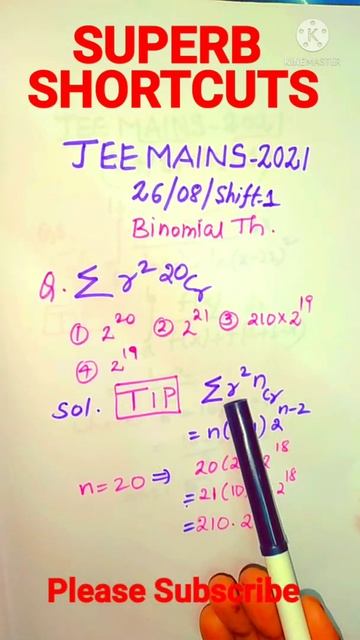 SUPERB
SHORTCUTS
KINEMASTER
JEE MAINS-2021
26/08/Shift-1
Binomial Th.
Q. Σ r² ²⁰Cr
① 2²⁰ ② 2²¹ ③ 210×2¹⁹
④ 2¹⁹
Sol. TIP Σr² nCr
= n( ) 2ⁿ⁻²
n=20 ⇒ 20(2 2¹⁸
= 21(10 2¹⁸
= 210. 2
Please Subscribe